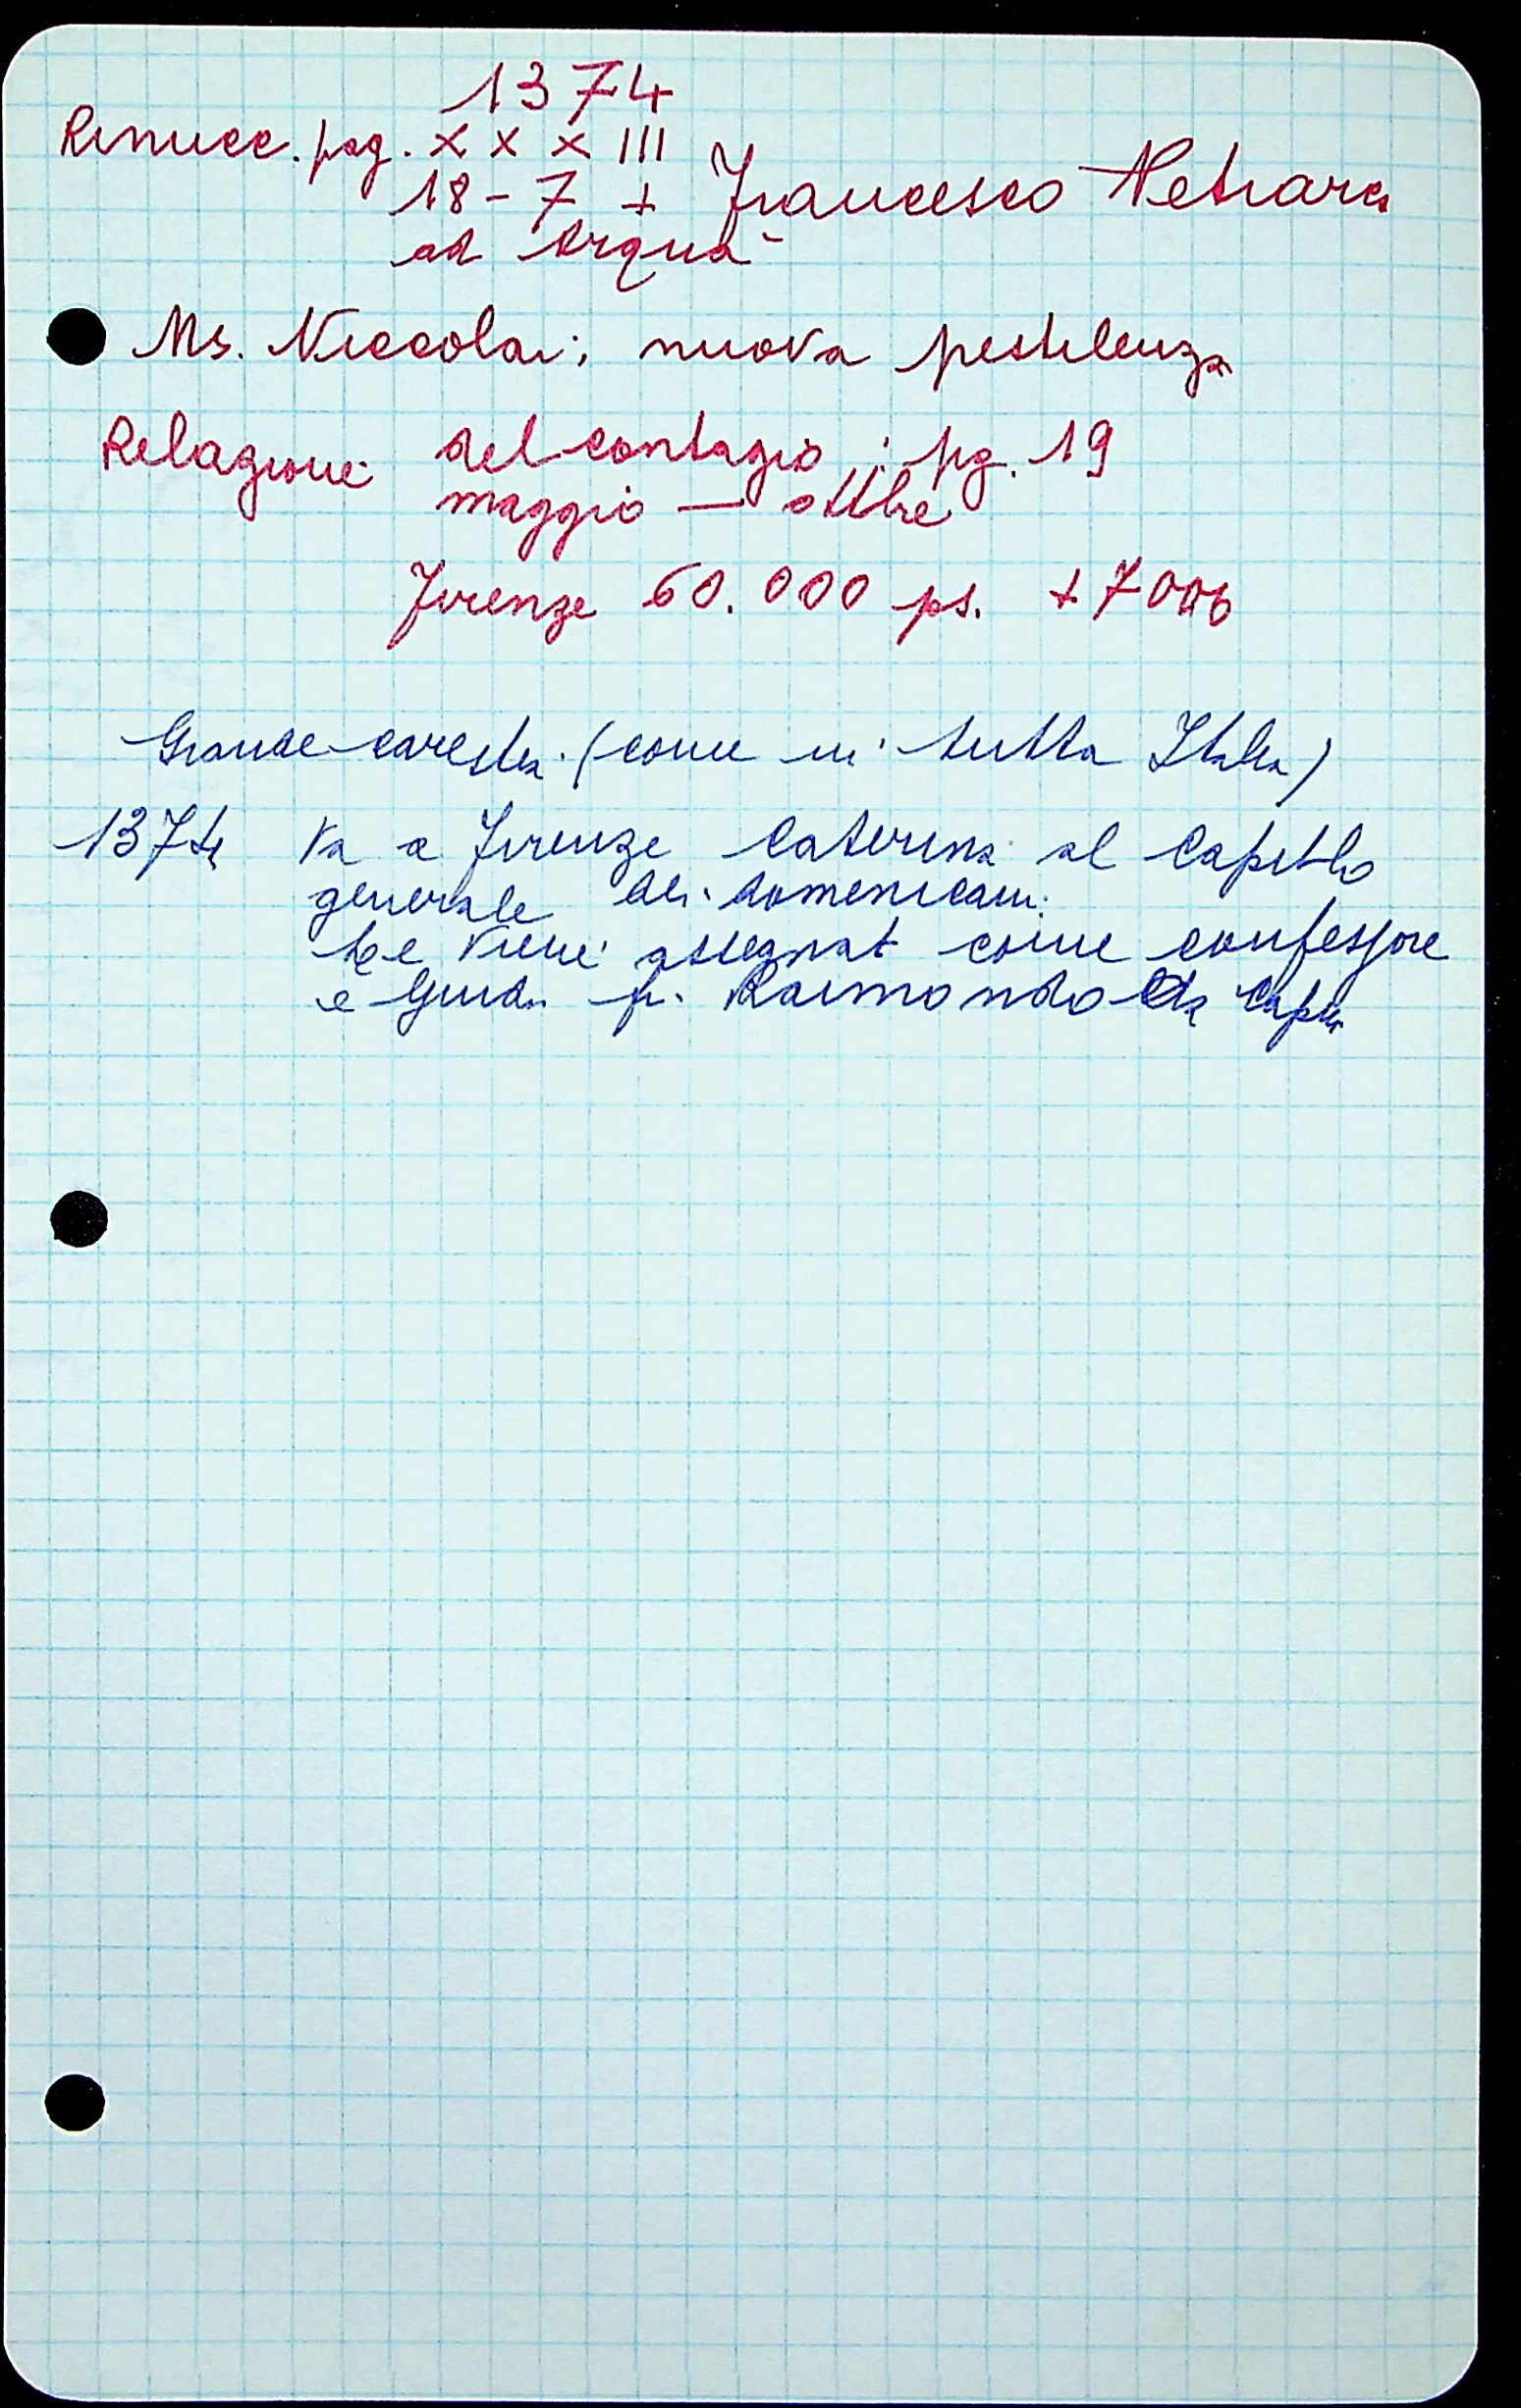 1374
Rinucc. pag. XXXIII
18-7 + Francesco Petrarca
ad Arquà
Ms. Niccolai; nuova pestilenza
Relazione del contagio: pg. 19
maggio — ottbre
Firenze 60.000 ps. + 7000
Grande carestia (come in tutta Italia)
1374 Va a Firenze Caterina al Capitolo
generale dei domenicani.
Le viene assegnat come confessore
e Guida fr. Raimondo da Capua